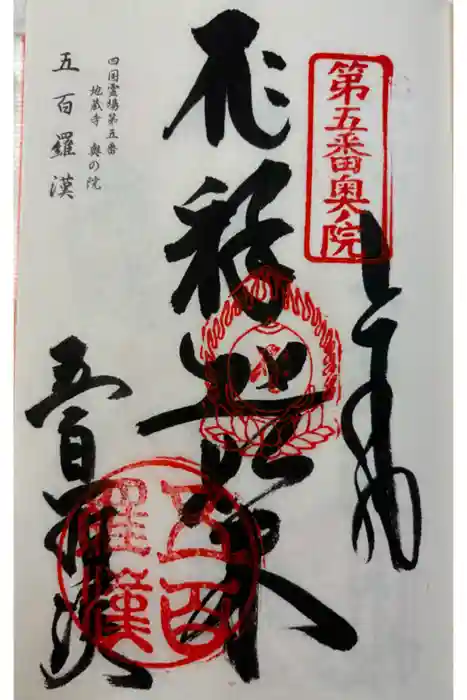 第五番奥ノ院
奉拝
釈迦如来
五百羅漢
五百
羅漢
四国霊場第五番
地蔵寺 奥の院
五百羅漢